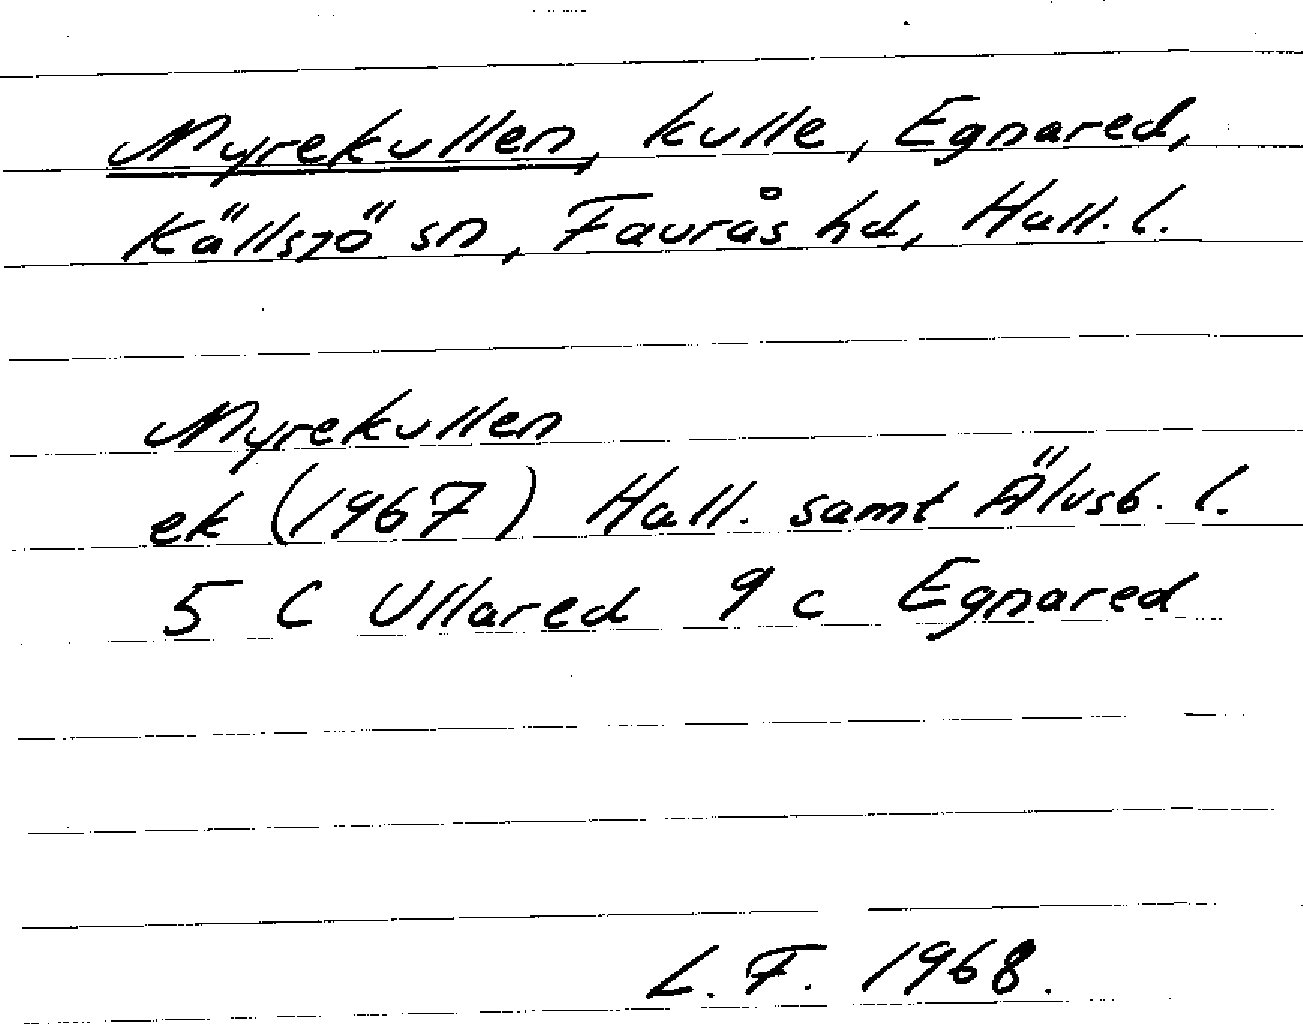 Myrekullen, kulle, Egnared,
Källsjö sn, Faurås hd, Hall. l.
Myrekullen
ek (1967) Hall. samt Älvsb. l.
5 C Ullared 9 c Egnared
L. F. 1968.